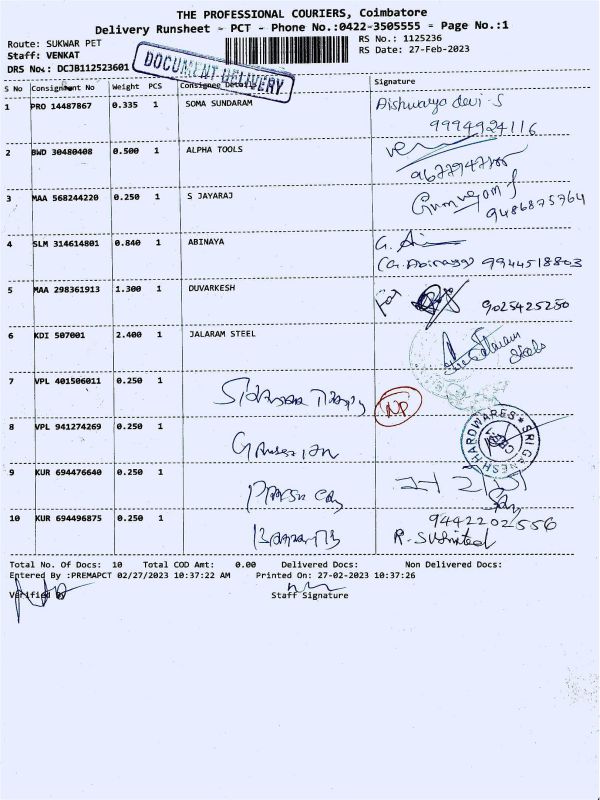 THE PROFESSIONAL COURIERS, Coimbatore
Delivery Runsheet - PCT - Phone No.:0422-3505555 - Page No.:1
Route: SUKWAR PET
RS No.: 1125236
Staff: VENKAT
RS Date: 27-Feb-2023
DRS No.: DCJB112523601
DOCUMENT DELIVERY
S No Consignment No Weight PCS Consignee Details Signature
1 PRO 14487867 0.335 1 SOMA SUNDARAM
9994924116
2 BWD 30480408 0.500 1 ALPHA TOOLS
3 MAA 568244220 0.250 1 S JAYARAJ
9486875764
4 SLM 314614801 0.840 1 ABINAYA G.
9944518803
5 MAA 298361913 1.300 1 DUVARKESH For
9025425250
6 KDI 507001 2.400 1 JALARAM STEEL
7 VPL 401506011 0.250 1 NP
8 VPL 941274269 0.250 1
SRI GANESH HARDWARES
9 KUR 694476640 0.250 1
10 KUR 694496875 0.250 1 9442202556
Total No. Of Docs: 10 Total COD Amt: 0.00 Delivered Docs: Non Delivered Docs:
Entered By :PREMAPCT 02/27/2023 10:37:22 AM Printed On: 27-02-2023 10:37:26
Verified By Staff Signature